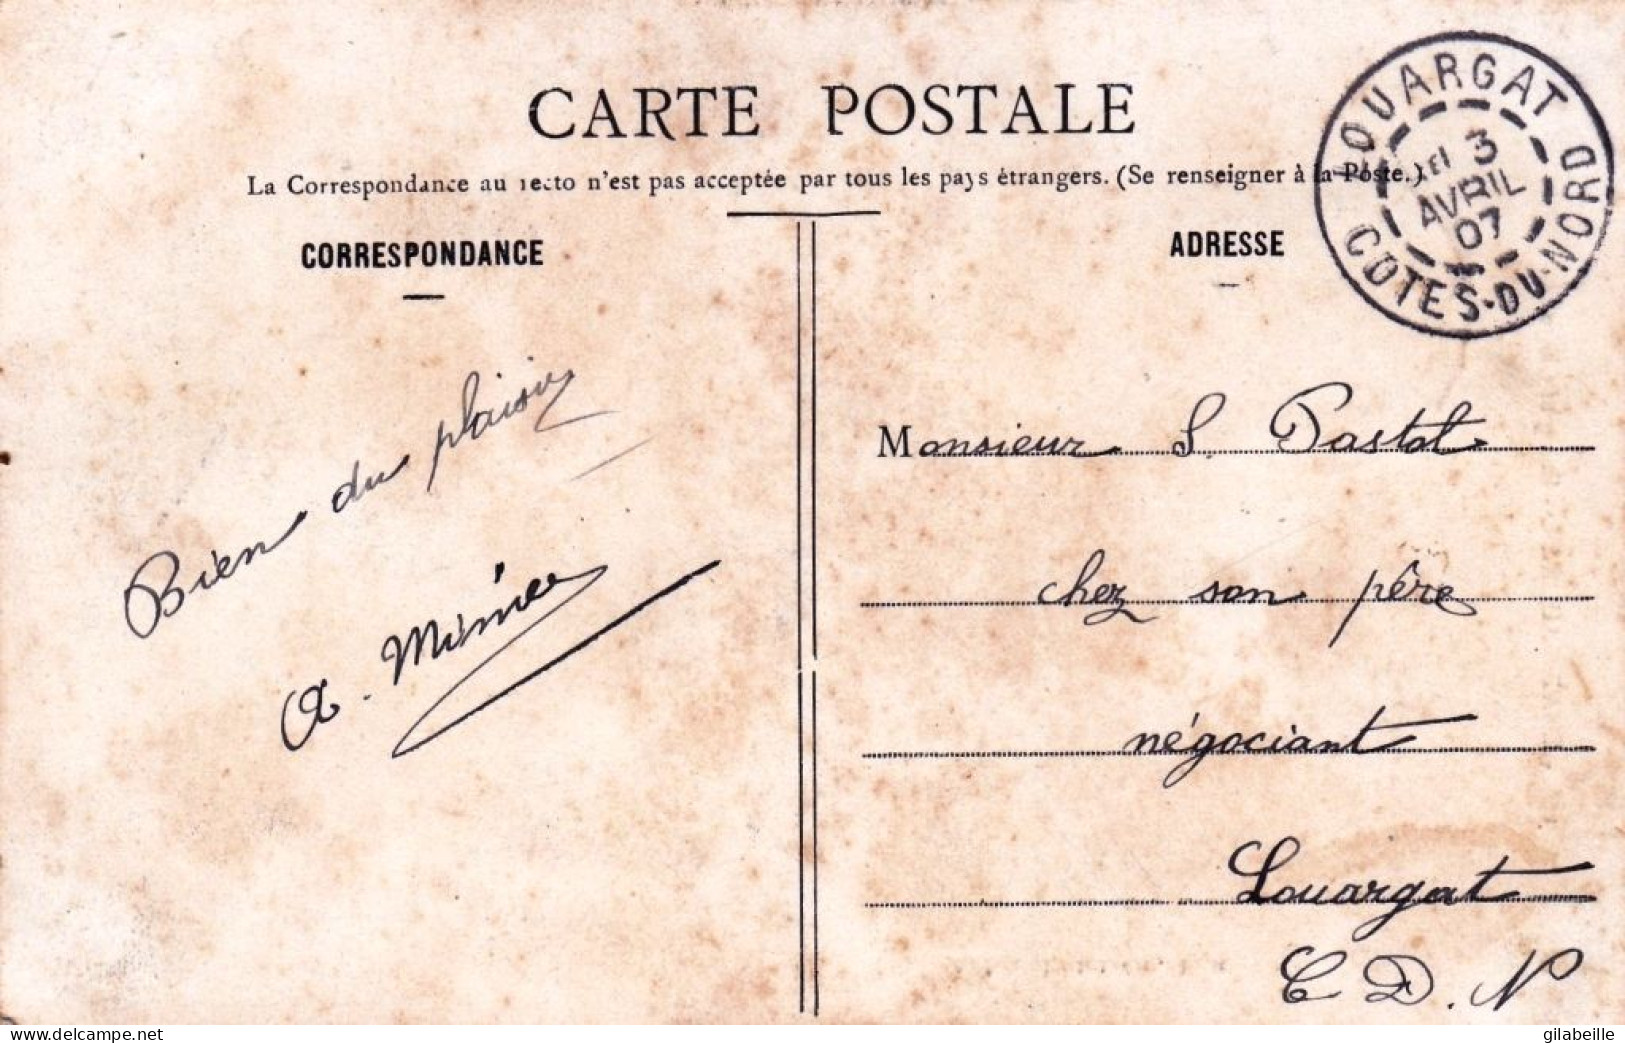 CARTE POSTALE
La Correspondance au recto n'est pas acceptée par tous les pays étrangers. (Se renseigner à la Poste.)
CORRESPONDANCE
ADRESSE
LOUARGAT
3
AVRIL
07
COTES-DU-NORD
Bien du plaisir
A.
Monsieur S. Pastol
chez son père
négociant
Louargat
C. D. N
delcampe.net
gilabeille